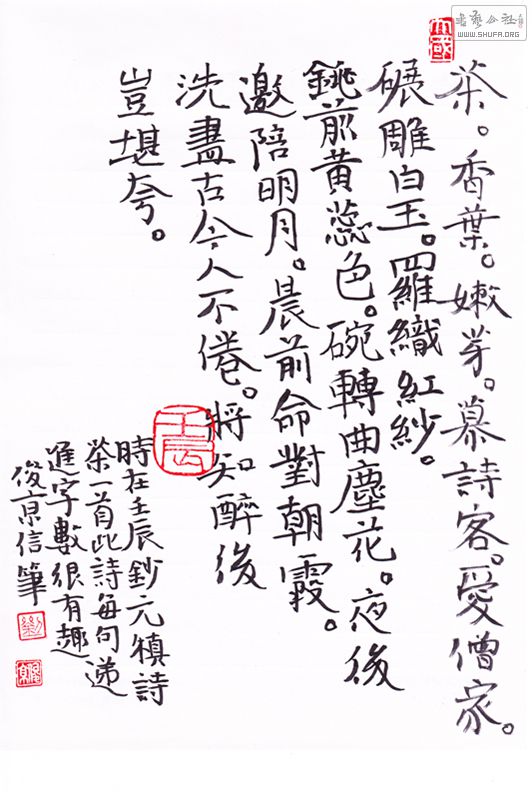 書藝公社
WWW.SHUFA.ORG
茶。香葉。嫩芽。慕詩客。愛僧家。
碾雕白玉。羅織紅紗。
銚煎黃蕊色。碗轉曲塵花。夜後
邀陪明月。晨前命對朝霞。
洗盡古今人不倦。將知醉後
豈堪夸。
壬辰
時在壬辰鈔元稹詩
茶一首此詩每句递
進字數很有趣
俊京信筆